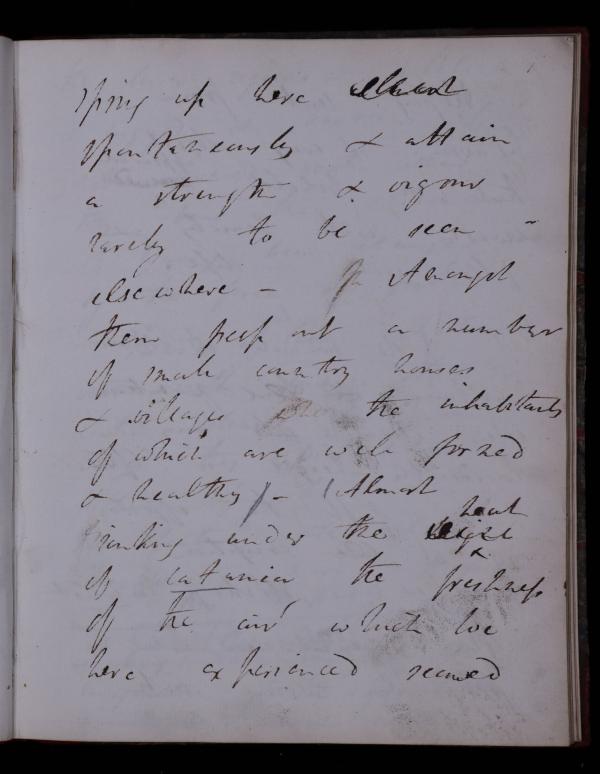 spring up here almost
spontaneously & attain
a strength & vigour
rarely to be seen
elsewhere – Amongst
them peep out a number
of small country houses
& villages the inhabitants
of which are well formed
& healthy – Almost
heat
sinking under the
of Catania the freshness
of the air which we
here experienced seemed